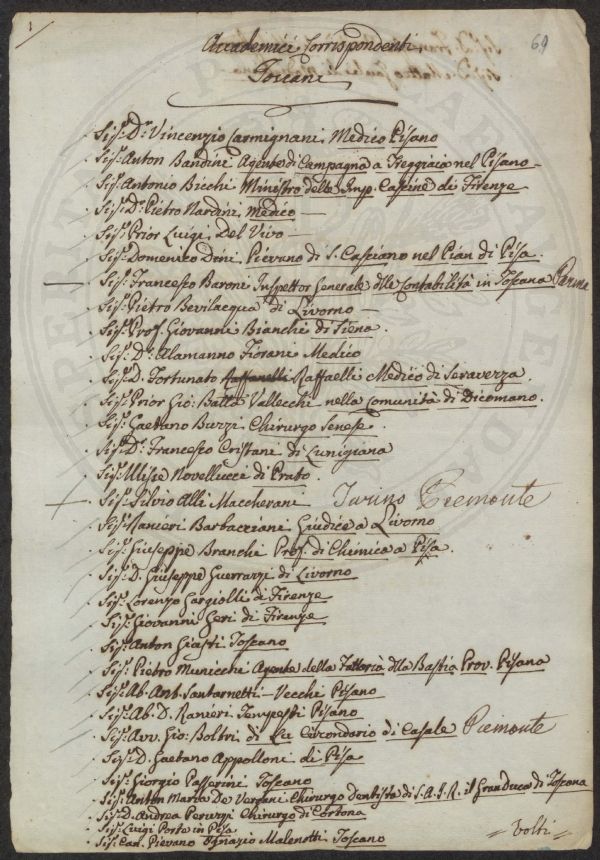 1
69
Accademici Corrispondenti
Toscani
Sig.r D.r Vincenzio Carmignani Medico Pisano
Sig.r Anton Bandini Agente di Campagna a Treggiaia nel Pisano
Sig.r Antonio Bicchi Ministro delle Imp. Cascine di Firenze
Sig.r D.r Pietro Nardini Medico —
Sig.r Prior Luigi Del Vivo —
Sig.r Domenico Dini, Pievano di S. Casciano nel Pian di Pisa.
Sig.r Francesco Baroni Inspettor Generale dlle Contabilità in Toscana Parma
Sig.r Pietro Bevilacqua di Livorno —
Sig.r Prof. Giovanni Bianchi di Siena.
Sig.r D.r Alamanno Fiorani Medico
Sig.r D. Fortunato Raffaelli Medico di Seravezza.
Sig.r Prior Gio: Batta Vallecchi nella Comunità di Dicomano.
Sig.r Gaetano Buzzi Chirurgo Senese.
Sig.r D.r Francesco Cristani di Lunigiana
Sig.r Ulisse Novellucci di Prato.
Sig.r Silvio Alli Maccherani Torino Piemonte
Sig.r Ranieri Barbacciani Giudice a Livorno
Sig.r Giuseppe Branchi Prof. di Chimica a Pisa.
Sig.r D. Giuseppe Guerrazzi di Livorno
Sig.r Lorenzo Gargiolli di Firenze
Sig.r Giovanni Geri di Firenze
Sig.r Anton Giusti Toscano
Sig.r Pietro Municchi Agente della Fattoria dlla Bastia Prov. Pisana
Sig.r Ab. Ant. Santarnetti-Vecchi Pisano
Sig.r Ab. D. Ranieri Tempesti Pisano
Sig.r Avv. Gio: di Circondario di Casale Piemonte
Sig.r D. Gaetano Appolloni di Pisa
Sig.r Giorgio Passerini Toscano
Sig.r Anton Maria De Vergani Chirurgo Dentista di S. A. I. R. il Gran Duca di Toscana
Sig.r D. Andrea Peruzzi Chirurgo di Cortona
Sig.r Luigi Porte in Pisa
Sig.r Can. Pievano Ignazio Malenotti Toscano
= Volti =